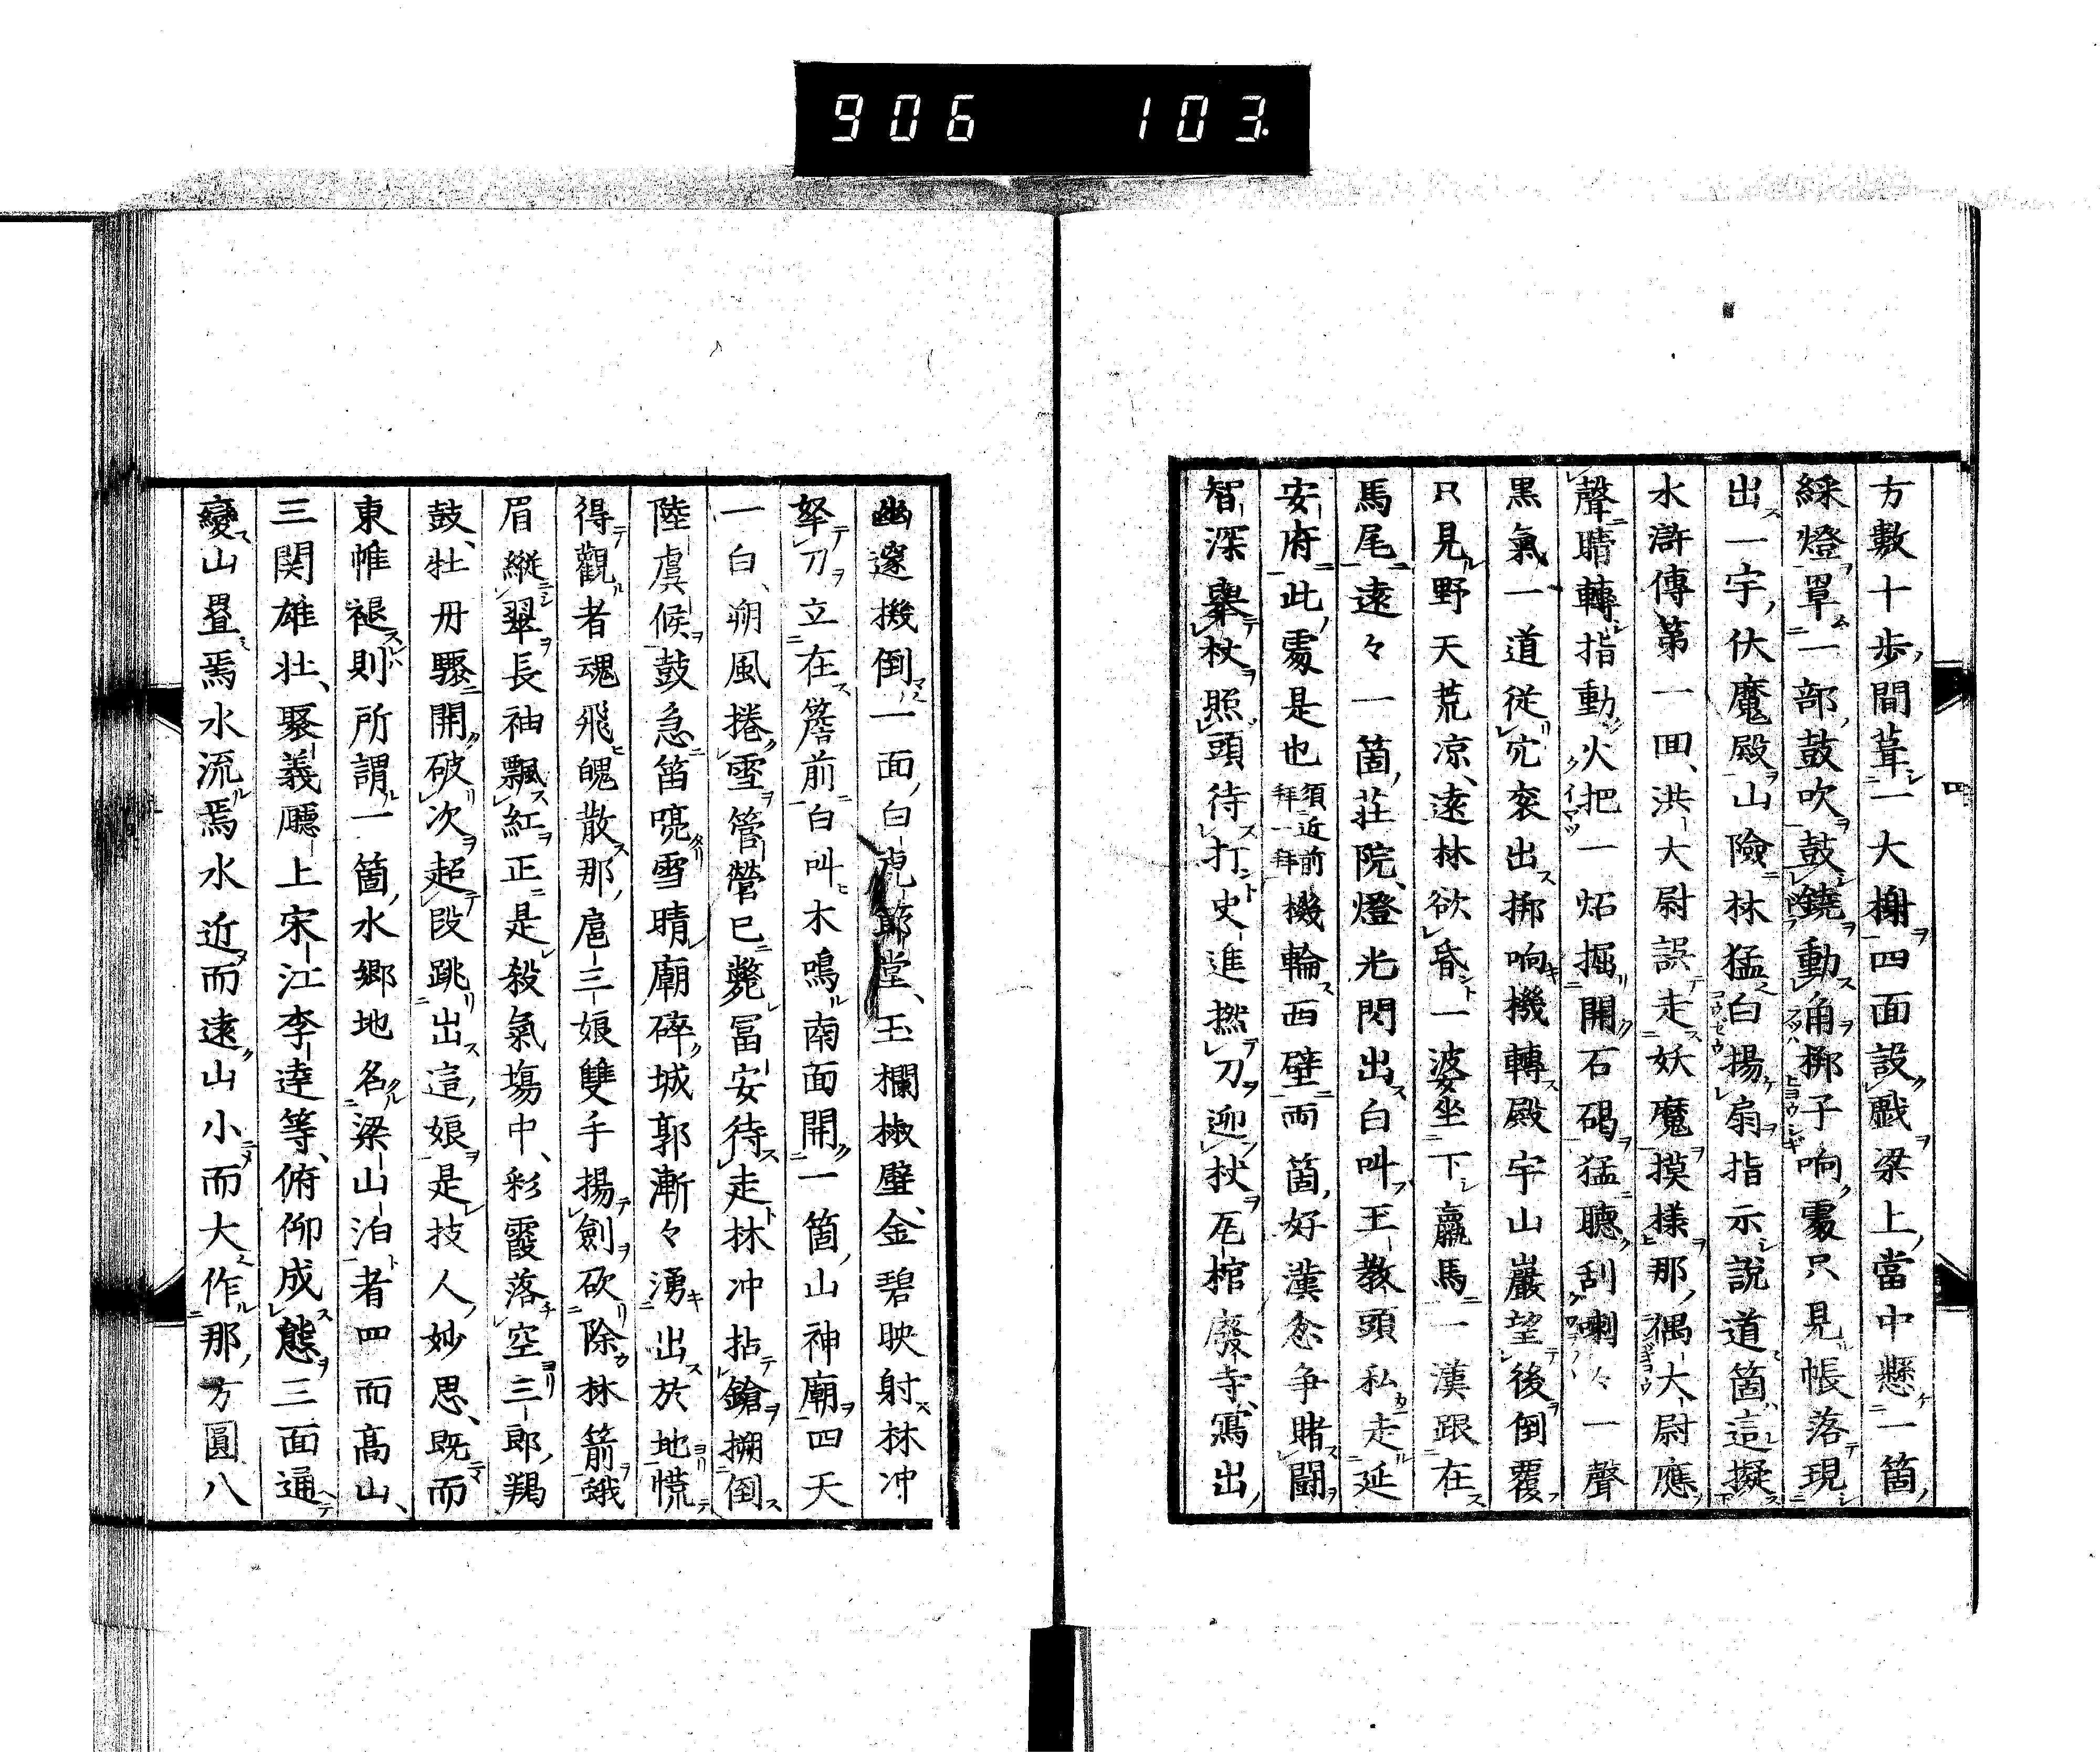 906 103.
四
方數十歩間葺一大榭四面設戲梁上當中懸一箇
綵燈罩一部鼓吹鼓鐃動角梆子响處只見帳落現
出一宇伏魔殿山險林猛白揚扇指示說道箇這擬
水滸傳第一回洪大尉誤走妖魔摸様那偶大尉應
聲睛轉指動火把一炻掘開石碣猛聽刮喇々一聲
黒氣一道從穴衮出梆响機轉殿宇山巖望後倒覆
只見野天荒凉遠林欲昏一婆坐下羸馬一漢跟在
馬尾遠々一箇莊院燈光閃出白叫王教頭私走延
安府此處是也須近前拜一拜機輪西壁而箇好漢忿争賭鬪
智深舉杖照頭待打史進撚刀迎杖瓦棺廢寺寫出
幽邃機倒一面白虎節堂玉欄椒壁金碧映射林冲
拏刀立在簷前白叫木鳴南面開一箇山神廟四天
一白朔風捲雪管營已斃冨安待走林冲拈鎗搠倒
陸虞候鼓急笛喨雪晴廟碎城郭漸々湧出於地慌
得觀者魂飛魄散那扈三娘雙手揚劍砍除林箭蛾
眉縱翠長袖飄紅正是殺氣塲中彩霞落空三郎羯
鼓牡丹驟開破次超段跳出這娘是技人妙思既而
東帷褪則所謂一箇水郷地名梁山泊者四而高山
三関雄壯聚義廳上宋江李逹等俯仰成態三面通
變山畳焉水流焉水近而遠山小而大作那方圓八